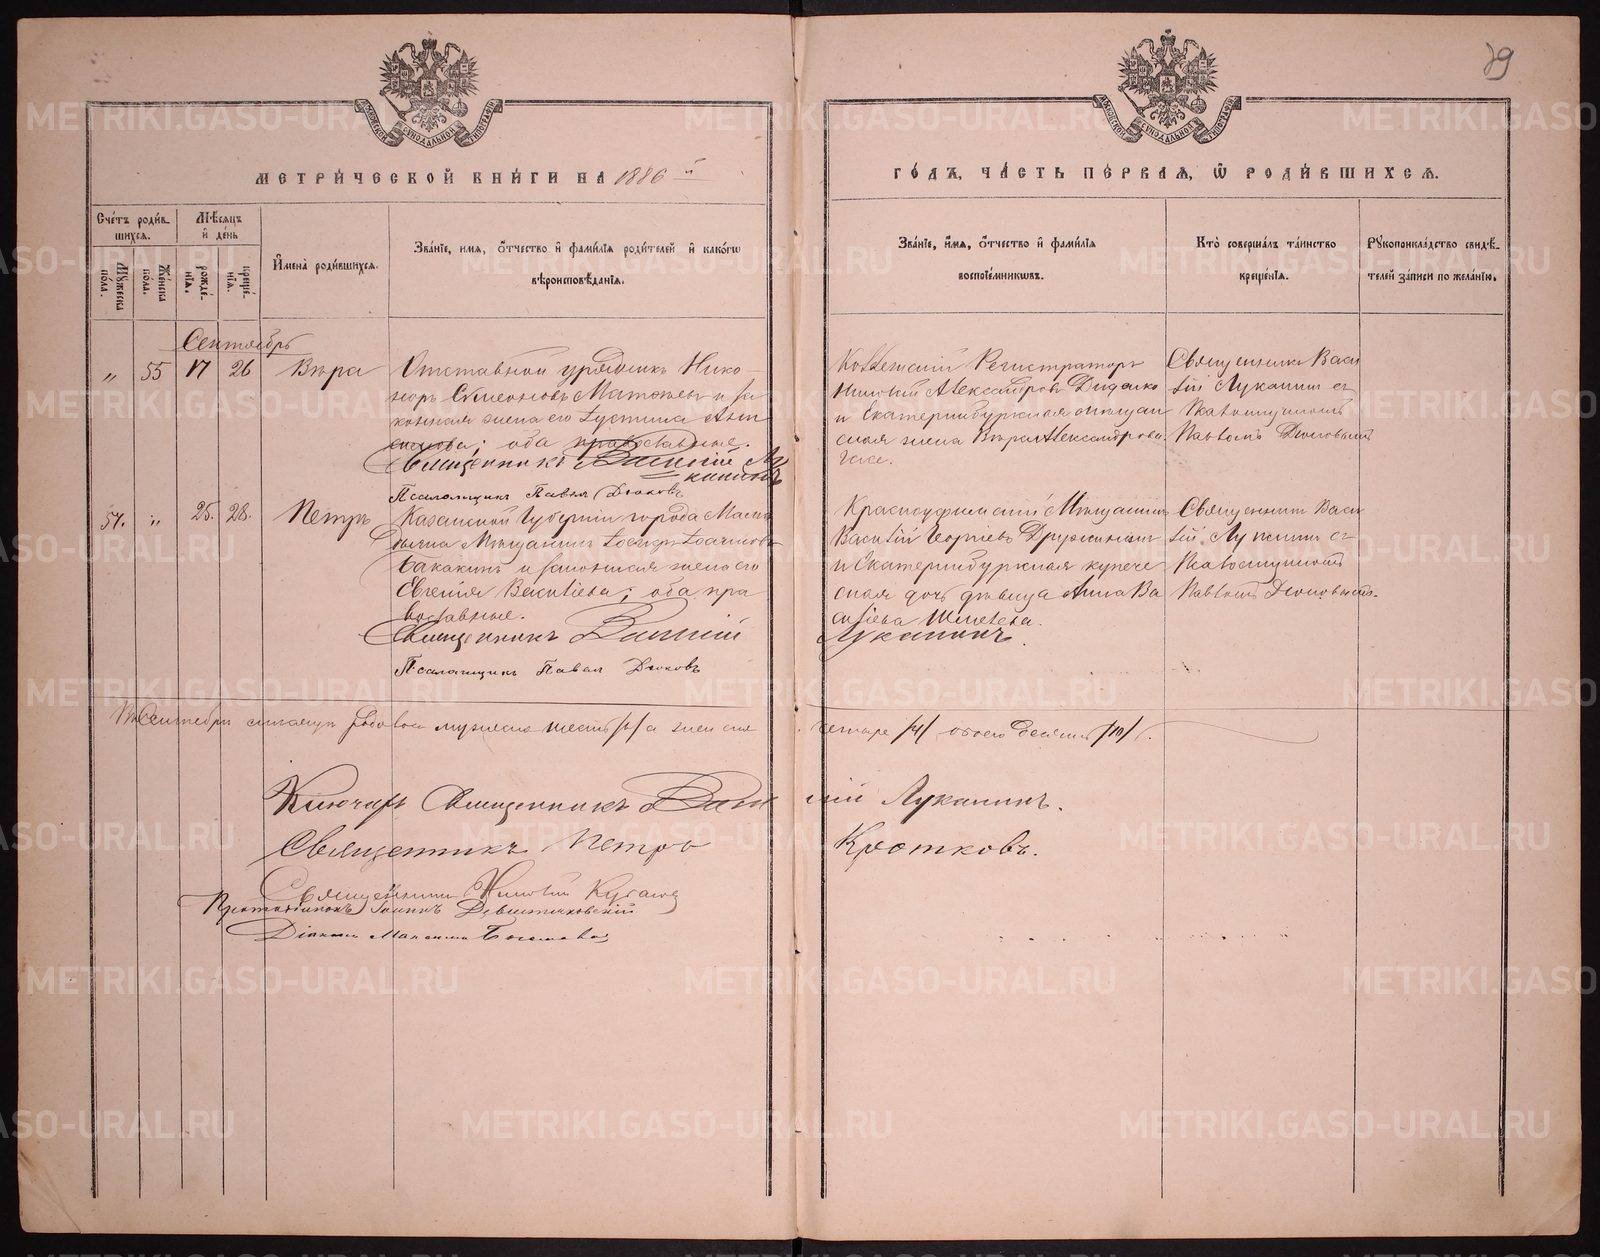 МЕТРИЧЕСКОЙ КНИГИ НА 1886й
ГОДЪ, ЧАСТЬ ПЕРВАЯ, Ѿ РОДИВШИХСЯ.
29
Счетъ родившихся.
Мужеска пола.
Женска пола.
Мѣсяцъ и день
рожденія.
крещенія.
Имена родившихся.
Званіе, имя, отчество и фамилія родителей и какогѡ
вѣроисповѣданія.
Званіе, имя, отчество и фамилія
воспріемникѡвъ.
Кто совершалъ таинство
крещенія.
Рукоприкладство свидѣ-
телей записи по желанію.
Сентябрь
„ 55 17 26 Вѣра
Отставной урядникъ Нико-
норъ Симеоновъ и за
конная жена его Іустина
оба православные.
Священникъ Василій Лу
канинъ
Псаломщикъ Павелъ Дюковъ
Коллежскій Регистраторъ
Николай Александровъ
и Екатеринбургская мѣщан
ская жена Вѣра Александрова
Священникъ Васи
лій Луканинъ съ
Псаломщикомъ
Павломъ Дюковымъ
57. „ 25. 28. Петръ
Казанской Губерніи города
Мѣщанинъ Іосифъ
и законная жена его
Евгенія Васильева; оба пра
вославные.
Священникъ Василій
Луканинъ.
Псаломщикъ Павелъ Дюковъ
Красноуфимскій Мѣщанинъ
Василій Георгіевъ Дружининъ
и Екатеринбургская купече
ская дочь дѣвица Анна Ва
сильева
Священникъ Васи
лій Луканинъ съ
Псаломщикомъ
Павломъ Дюковымъ.
Въ Сентябрѣ мѣсяцѣ мужеска шесть /6/ а женска
четыре /4/ обоего десять /10/.
Ключарь Священникъ Василій Луканинъ.
Священникъ Петръ Кротковъ.
Священникъ Николай
Іоаннъ
Діаконъ Максимъ
METRIKI.GASO-URAL.RU